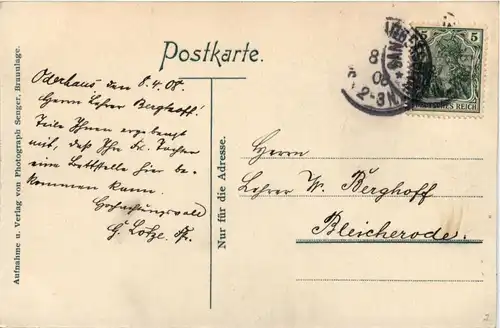 Postkarte.
5 5
DEUTSCHES REICH
8
08
2-3N.
Oderhaus den 8.4.08.
Herrn Lehrer Berghoff!
Teile Ihnen ergebenst
mit, daß Ihr Frl. Tochter
eine Bettstelle hier be-
kommen kann.
Hochachtungsvoll
H. Lotze
Herrn
Lehrer W. Berghoff
Bleicherode.
Nur für die Adresse.
Aufnahme u. Verlag von Photograph Senger, Braunlage.